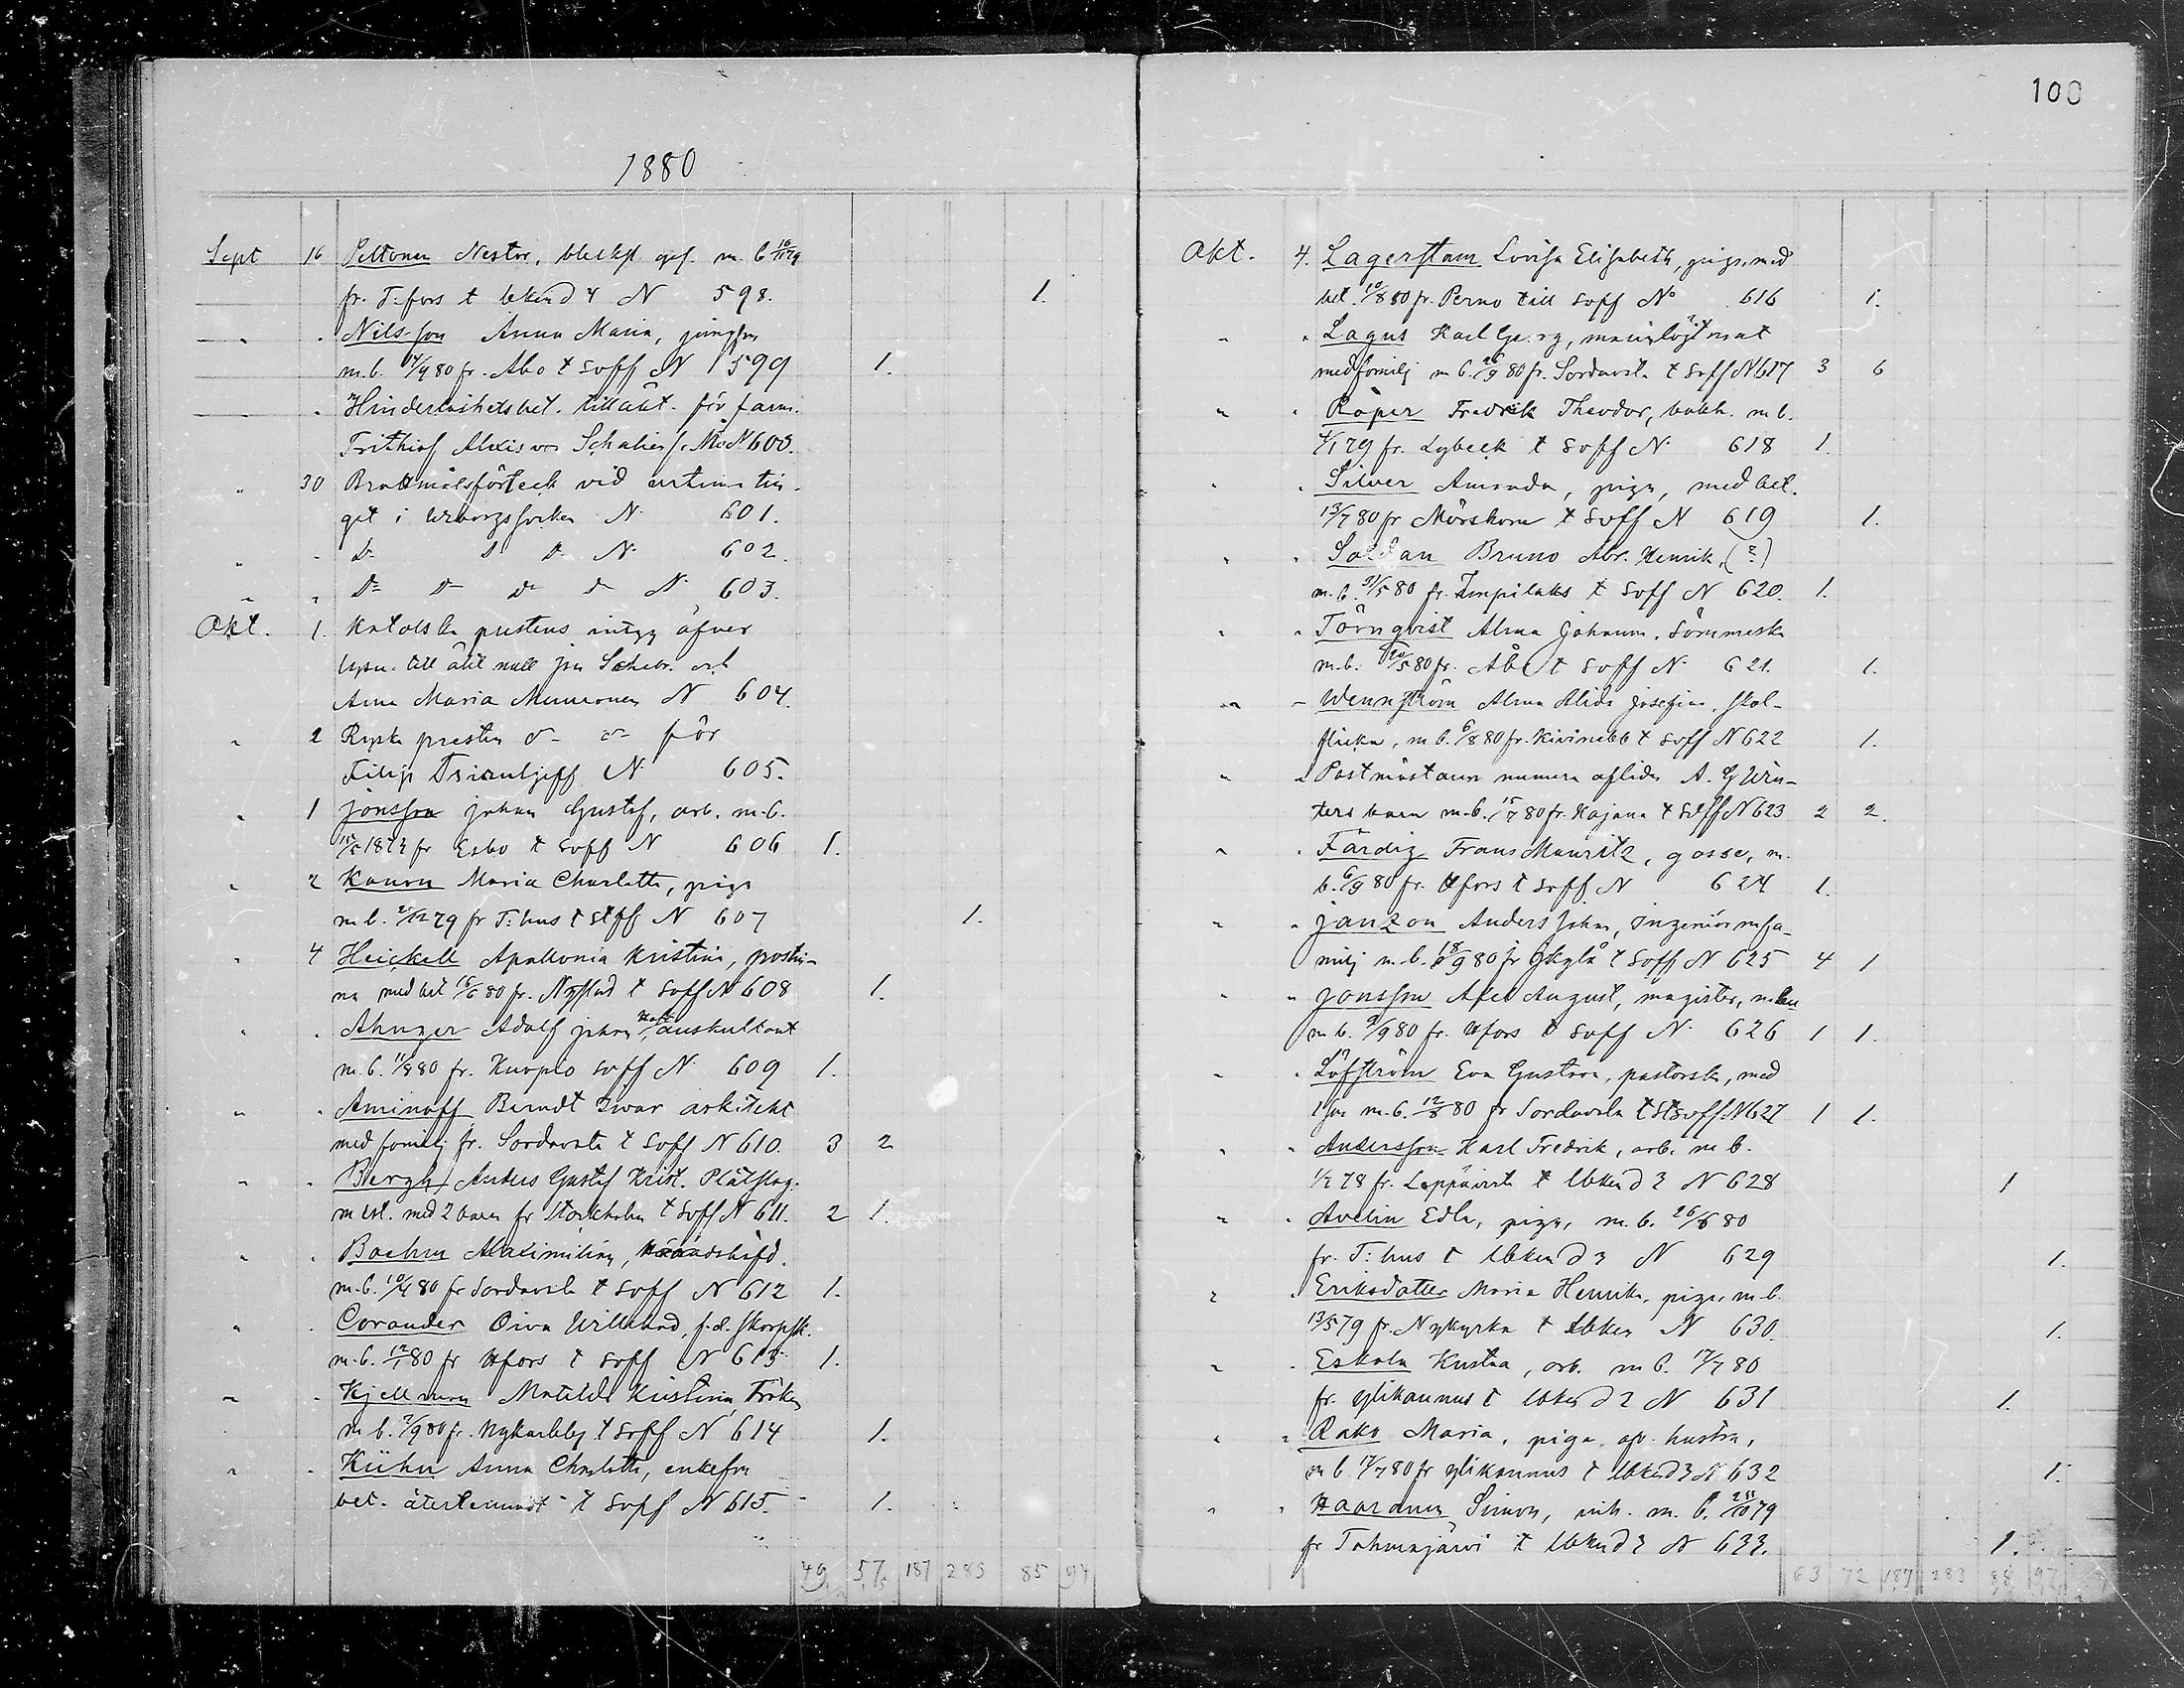 100
1880
Sept 16 Peltonen Nestor, blecksl. ges. m. b 10/11 79
fr. T:fors t lbken d 4 N 598. 1.
" . Nilsson Anna Maria, jungfru
m.b. 14/9 80 fr. Abo t soff N 599 1.
" . Hinderlöshetsbet. till äkt. för farm.
Frithiof Alexis von Schalien N 600.
" 30 Brottmålsförteck vid urtima tin-
get i Wiborgs socken N. 601.
" . D- D- D- N. 602.
" " D- D- D- D- N. 603.
Okt. 1. Katolska prestens intyg öfver
lysn. till äkt mell
Anna Maria Mununen N 604.
" 2 Ryska presten d- d- för
Filip N 605.
" 1 Jonsson Johan Gustaf, arb. m.b.
fr Esbo t soff N 606 1.
" 2 Kanon Maria Charlotta, piga
m.b. 2/12 79 fr T:hus t stff N 607 1.
" 4 Heickell Apollonia Kristina, postin-
na med bet 16/6 80 fr. Nystad t soff N 608 1.
" . Ahnger Adolf Johan, auskultant
m.b. 11/8 80 fr. Kuopio soff N. 609 1.
" . Aminoff Berndt Iwar arkitekt
med familj fr. Sordavala t soff N 610. 3 2
" . Bergh, Anders Gustaf Krist. Plåtslag.
m bet. med 2 barn fr Stockholm t soff N 611. 2 1.
" . Boehm Maximilian, häradshöfd.
m.b. 10/4 80 fr Sordavala t soff N 612 1.
" . Corander Oiva Willehad, f.d. skarpsk.
m.b. 12/1 80 fr Hfors t soff N 613 1.
" . Kjellman Matilda Kristina, Fröken
m b. 2/9 80 fr. Nykarleby t soff N 614 1.
" . Kühn Anna Charlotta, enkefru
bet. återlemnadt t soff N 615. 1.
49 57 187 283 85 94
Okt. 4. Lagerstam Lovisa Elisabeth, piga, med
bet. 10/8 80 fr. Perno till soff No 616 1.
" " Lagus Karl Georg,
med familj m b. 26/9 80 fr. Sordavala t soff N 617 3 6
" " Röper Fredrik Theodor, bokh. m b.
4/1 79 fr. Lybeck t soff N. 618 1.
" . Silver Amanda, piga, med bet.
13/7 80 fr Mörskom t soff N 619 1.
" . Soldan Bruno Abr. Henrik, (?)
m.b. 31/5 80 fr. Impilaks t soff N 620. 1.
" " Törnqvist Alma Johanna, sömmerska
m.b. 20/5 80 fr. Åbo t soff N. 621. 1.
" - Wennström Alma Alida Josefina, skol-
flicka, m b. 6/8 80 fr. Kivinebb t soff N 622 1.
" " Postmästaren numera aflidne A. G Win-
ters barn m.b. 15/7 80 fr. Kajana t soff N 623 2 2.
" . Färdig Frans Mauritz, gosse, m.
b. 6/9 80 fr. Hfors t soff N 624 1.
" . Janzon Anders Johan, Ingeniör m fa-
milj m.b. 18/9 80 fr Jkylä t soff N 625 4 1
" " Jonsson Axel August, magister, m fru
m b. 9/9 80 fr. Hfors t soff N. 626 1 1.
" . Löfström Eva Gustava, pastorska, med
1 son m.b. 12/8 80 fr Sordavala t stsoff N 627 1 1.
" . Andersson Karl Fredrik, arb. m b.
1/7 78 fr. Leppävirta t lbken d 3 N 628 1
" . Avelin Edla, piga, m.b. 26/6 80
fr. T:hus t lbken d 3 N 629 1.
" . Eriksdotter Maria Henrika, piga, m.b.
13/5 79 fr. Nykyrka t lbken N 630. 1.
" . Eskola Kustaa, arb. m b. 17/7 80
fr. Ylikannus t lbken d 2 N 631 1.
" " Rako Maria, piga, hustru,
m b. 17/7 80 fr Ylikannus t lbken d 3 N 632 1.
" . Haaranen Simon, inh. m. b. 211/10 79
fr Tohmajärvi t lbken d 3 N 633. 1.
63 72 187 283 88 97